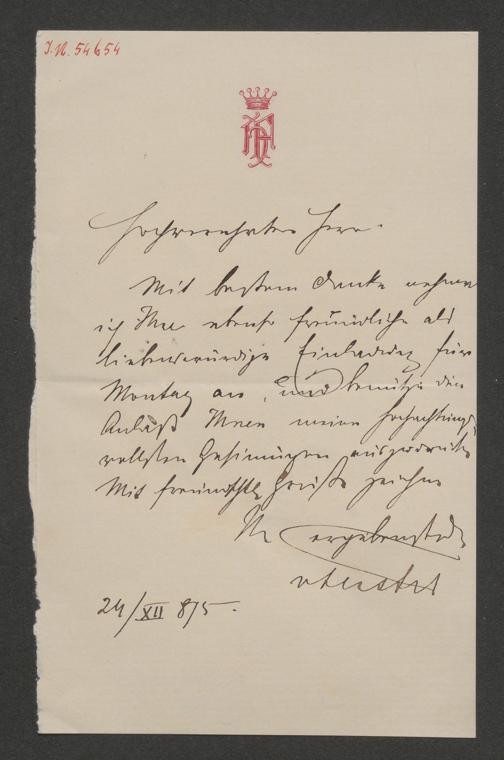 J.N. 54654
Hochverehrter Herr.
Mit bestem Danke nehme
ich Ihre ebenso freundliche als
liebenswürdige Einladung für
Montag an, und benütze den
Anlaß Ihnen meine hochachtungs
vollsten Gesinnungen auszudrücken
Mit freundschftl Grüße zeichne
Ihr ergebenster
24/XII 875.